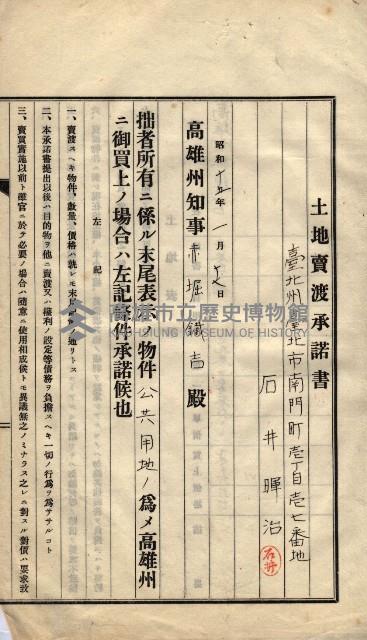 土地賣渡承諾書
臺北州臺北市南門町壱丁目壱七番地
石井暉治
石井
昭和十五年一月 日
高雄州知事 赤堀鐵吉 殿
拙者所有ニ係ル末尾表示ノ物件公共用地ノ為メ高雄州
ニ御買上ノ場合ハ左記條件承諾候也
左記
一、賣渡スヘキ物件、數量、價格ハ就レモ末尾 通リトス
二、本承諾書提出以後ハ目的物ヲ他ニ賣渡又ハ權利ノ設定等債務ヲ負擔スヘキ一切ノ行為ヲ為ササルコト
三、賣買實施以前ト雖官ニ於テ必要ノ場合ハ隨意ニ使用相成候トモ異議無之ノミナラス之レニ對スル對價ハ要求致
高雄市立歷史博物館
KAOHSIUNG MUSEUM OF HISTORY